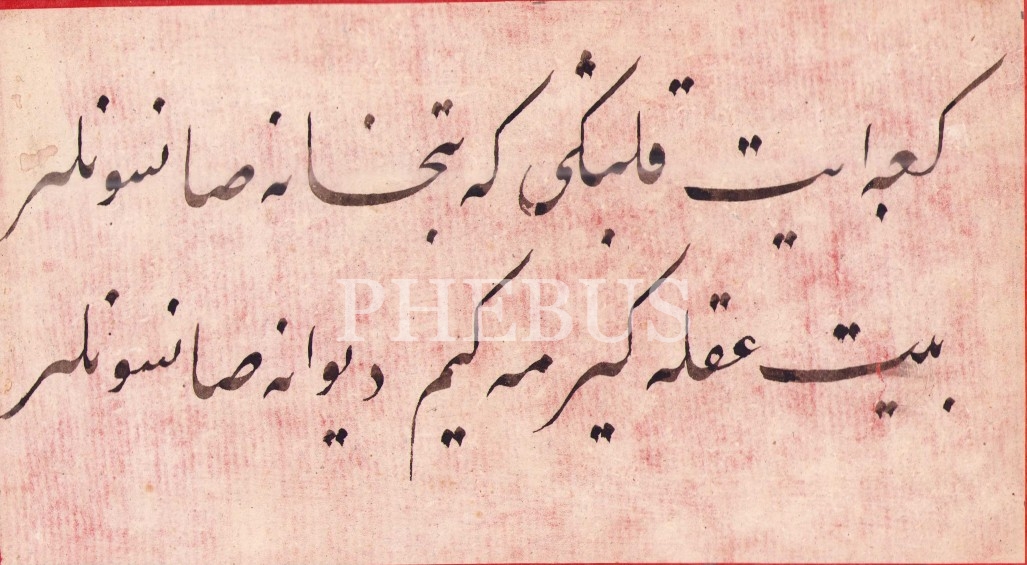 كعبه ايت قلبڭی كه بتخانه صانسونلر
بيت عقله كيرمه كيم ديوانه صانسونلر
PHEBUS